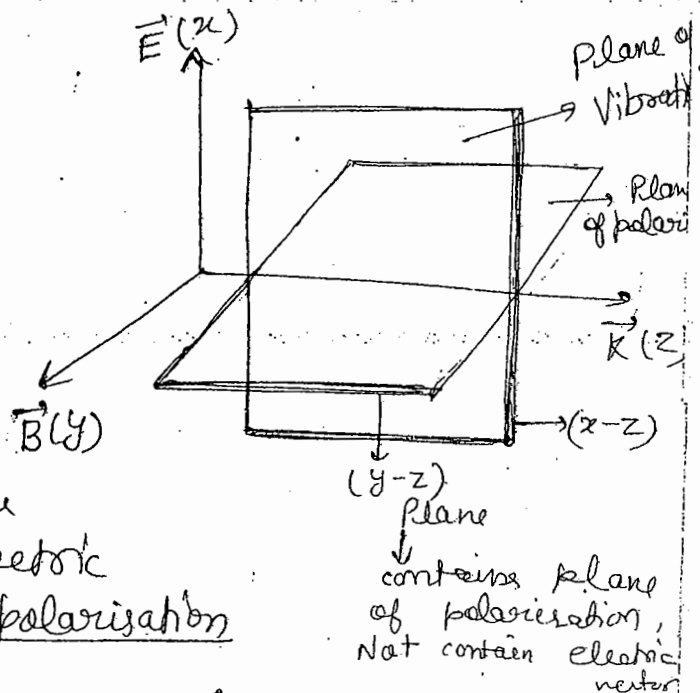 E (x)
Plane o
Vibrat
Plan
of polari
K (Z
B (y)
(x-z)
(y-z)
Plane
contains plane
of polarisation,
Not contain electric
vector
ectric
polarisation